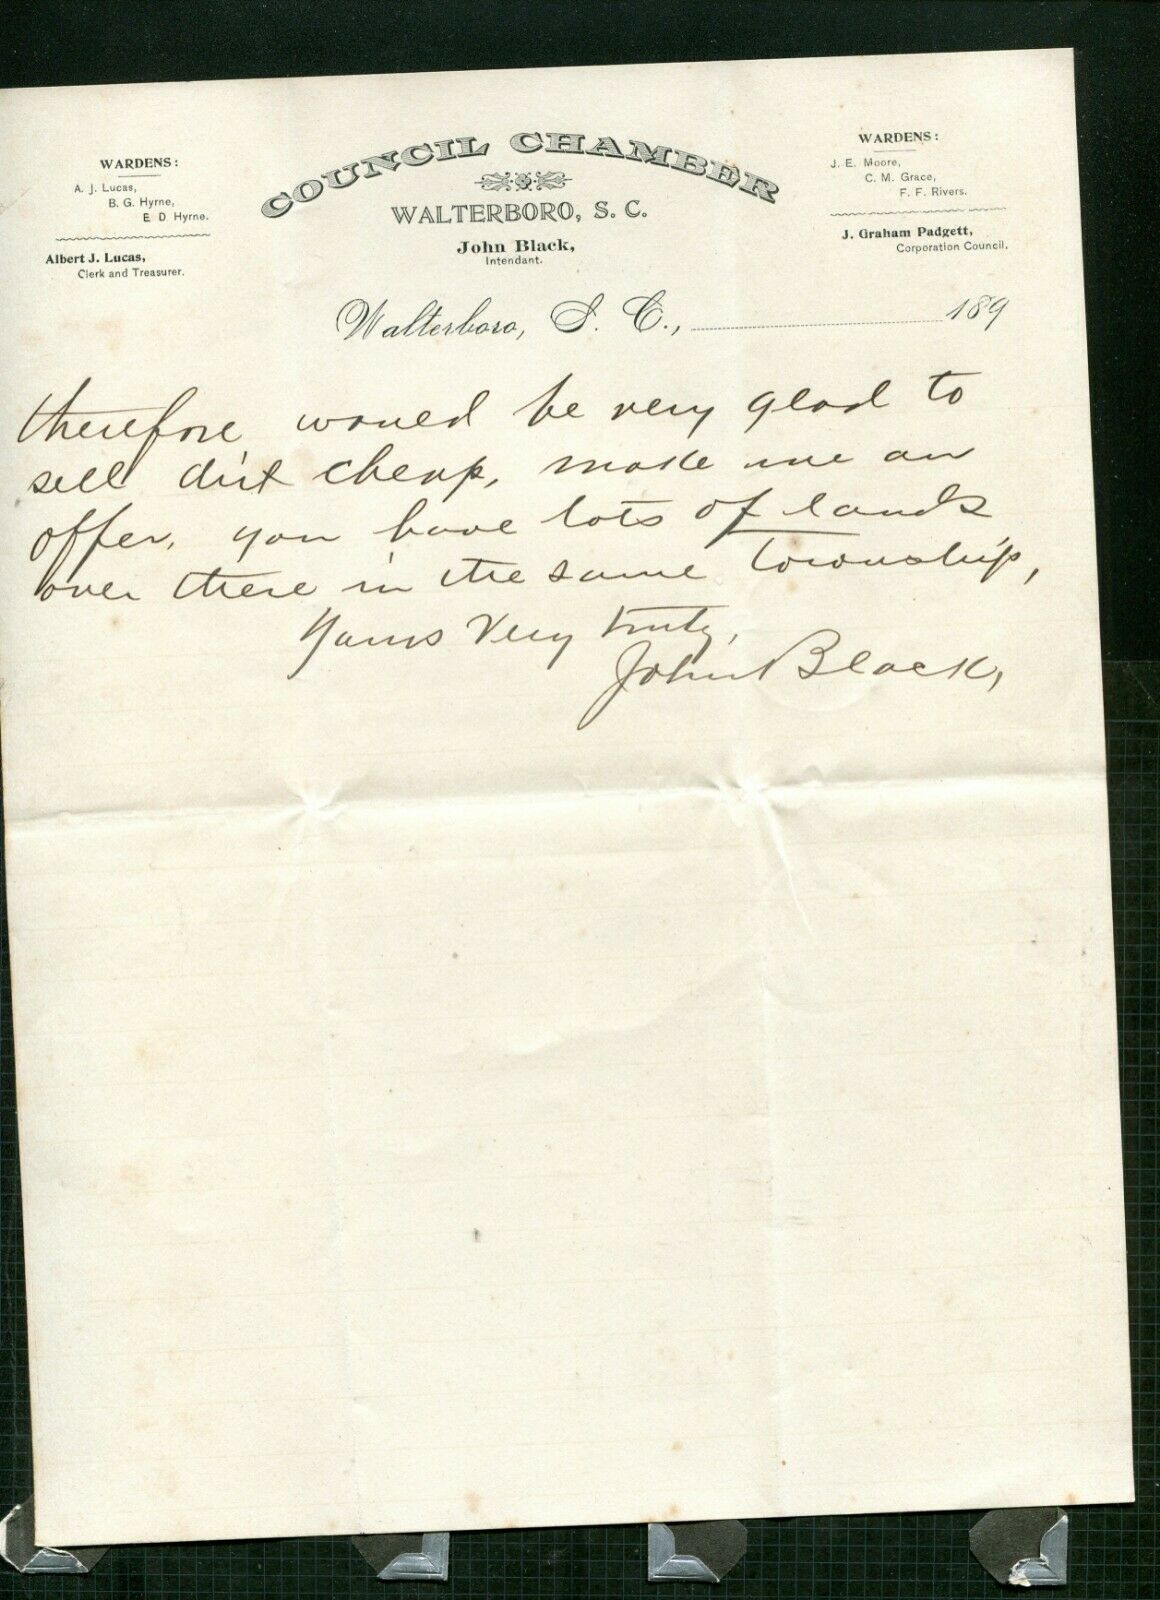 COUNCIL CHAMBER
WALTERBORO, S. C.
John Black,
Intendant.
WARDENS:
A. J. Lucas,
B. G. Hyrne,
E D Hyrne.
Albert J. Lucas,
Clerk and Treasurer.
WARDENS:
J. E. Moore,
C. M. Grace,
F. F. Rivers.
J. Graham Padgett,
Corporation Council.
Walterboro, S. C., 189
therefore would be very glad to
sell dirt cheap, make me an
offer, you have lots of lands
over there in the same Township,
Yours Very truly,
John Black,